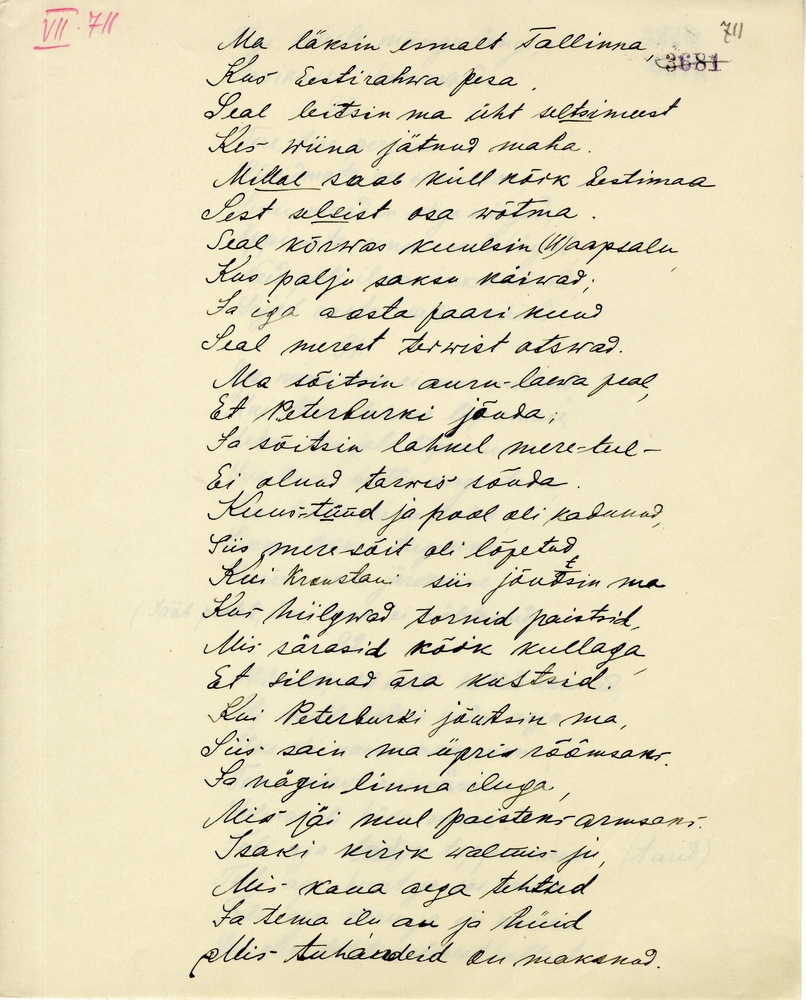 VII. 711
711
3681
Ma läksin esmalt Tallinna,
Kus Eestirahwa pesa.
Seal leitsin ma üht seltsimeest
Kes wiina jätnud maha.
Millal saab küll kõik Eestimaa
Sest selsist osa wõtma.
Seal kõrwas kuulsin (H)aapsalu,
Kus palju saksu käiwad;
Ja iga aasta paari kuud
Seal merest terwist otswad.
Ma sõitsin auru-laewa peal,
Et Peterburki jõuda;
Ja sõitsin lahkel mere-teel-
Ei olnud tarwis sõuda.
Kuus-tüüd ja pool oli kadunud,
Siis meresõit oli lõpetud,
Kui Kronstani siis jõutsin ma
Kus hiilgwad tornid paistsid,
Mis särasid kõõk kullaga,
Et silmad ära kustsid.
Kui Peterburki jõutsin ma,
Siis sain ma üpris rõõmsaks.
Ja nägin linna iluga,
Mis jäi meul paisteks armsaks.
Isaki kirik walmis ju,
Mis kaua aega tehtsed
Ja tema ilu au ja hüid
Mis tuhandeid on maksnud.